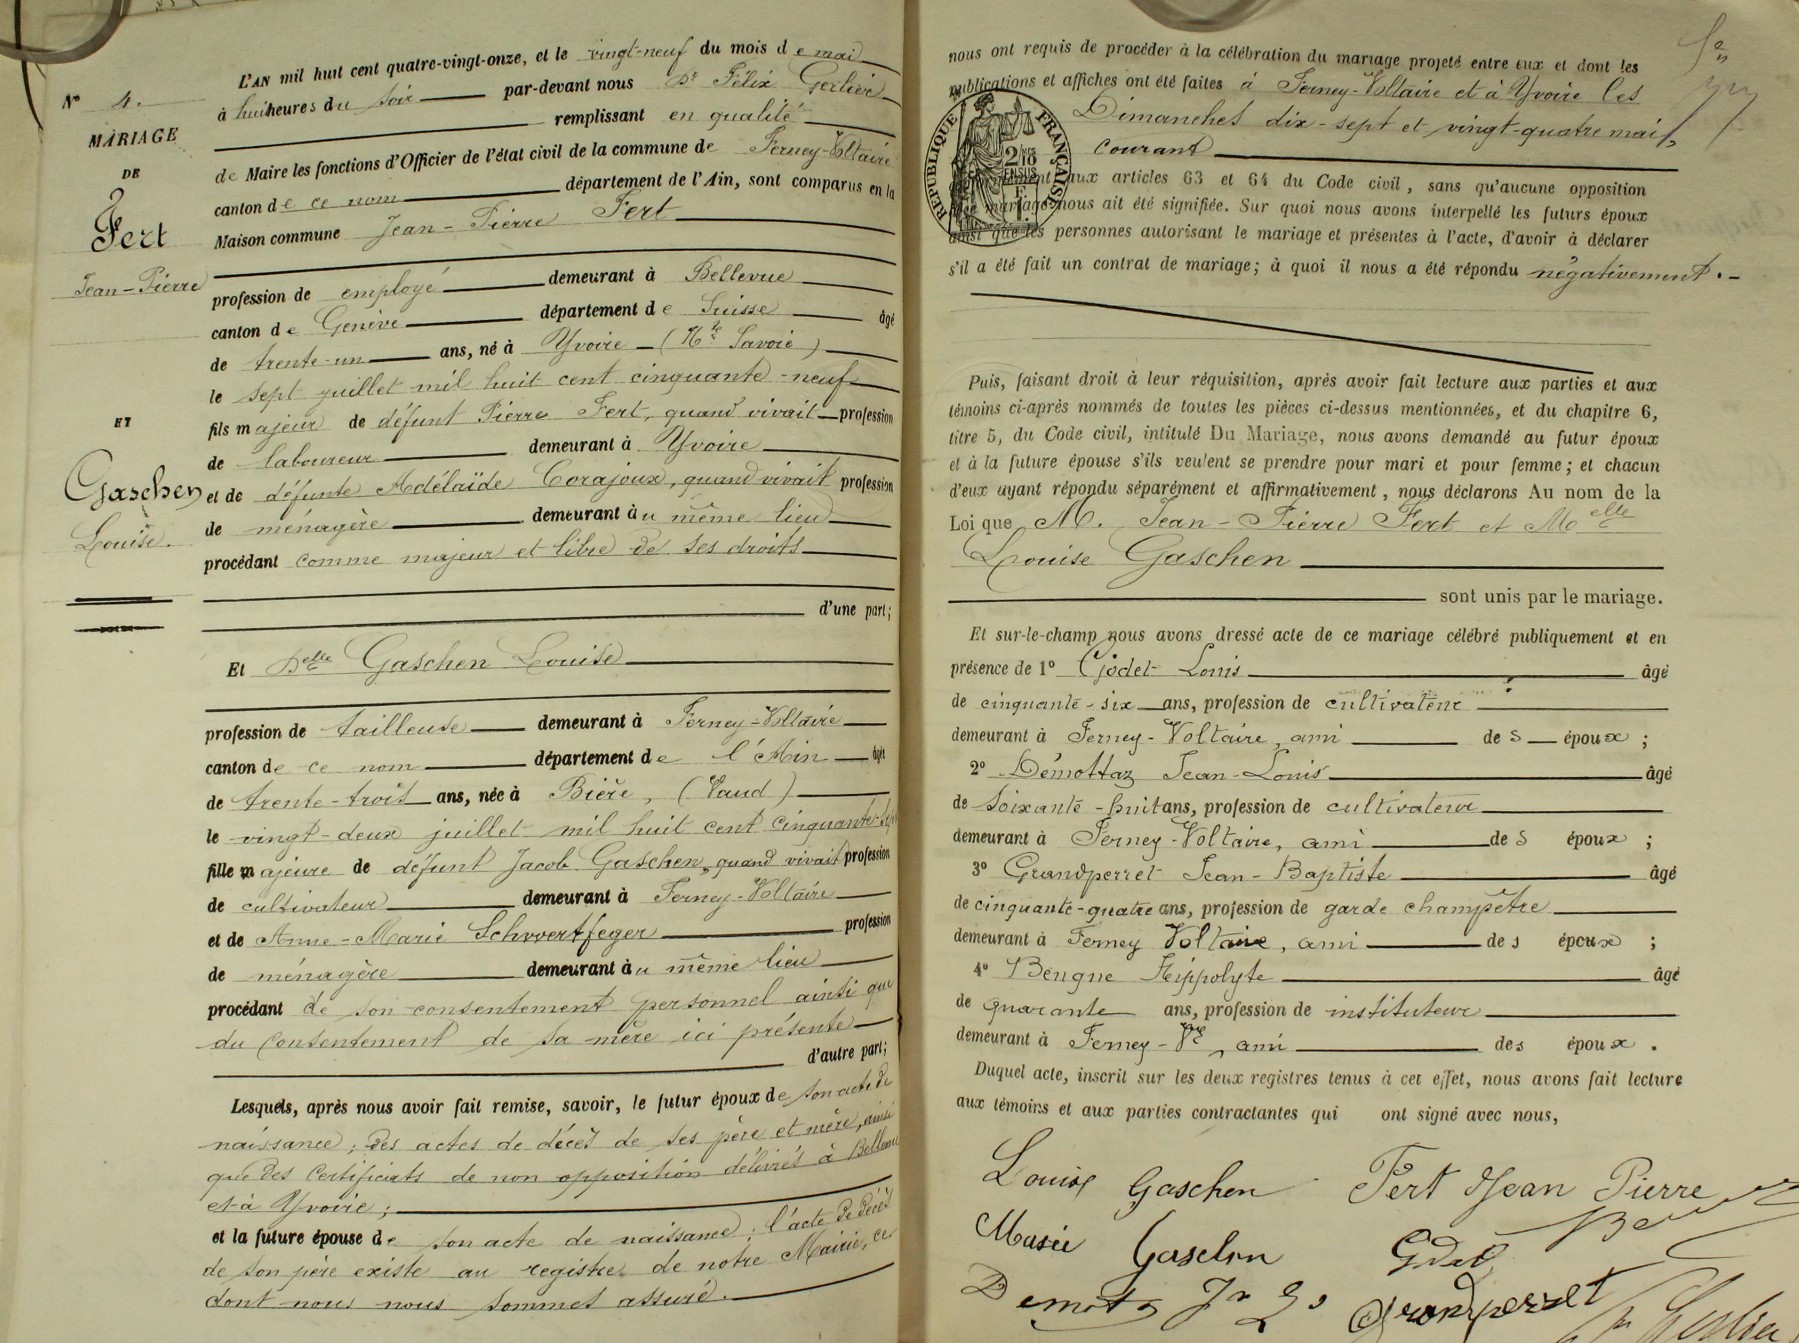 N° 4.
MARIAGE
DE
Fert
Jean-Pierre
ET
Gaschen
Louise.
L'AN mil huit cent quatre-vingt-onze, et le vingt-neuf du mois de mai
à huit heures du soir par-devant nous Dr Félix Gerlier
remplissant en qualité
de Maire les fonctions d'Officier de l'état civil de la commune de Ferney-Voltaire
canton de ce nom département de l'Ain, sont comparus en la
Maison commune Jean-Pierre Fert
profession de employé demeurant à Bellevue
canton de Genève département de Suisse âgé
de trente-un ans, né à Yvoire (Hte Savoie)
le sept juillet mil huit cent cinquante-neuf
fils majeur de défunt Pierre Fert, quand vivait profession
de laboureur demeurant à Yvoire
et de défunte Adélaïde Corajoux, quand vivait profession
de ménagère demeurant au même lieu
procédant comme majeur et libre de ses droits
d'une part;
Et Delle Gaschen Louise
profession de tailleuse demeurant à Ferney-Voltaire
canton de ce nom département de l'Ain âgée
de trente-trois ans, née à Bière, (Vaud)
le vingt-deux juillet mil huit cent cinquante-sept
fille majeure de défunt Jacob Gaschen, quand vivait profession
de cultivateur demeurant à Ferney-Voltaire
et de Anne-Marie Schwertfeger profession
de ménagère demeurant au même lieu
procédant de son consentement personnel ainsi que
du consentement de sa mère ici présente
d'autre part;
Lesquels, après nous avoir fait remise, savoir, le futur époux de son acte de
naissance; des actes de décès de ses père et mère, ainsi
que des certificats de non opposition délivrés à Bellevue
et à Yvoire;
et la future épouse de son acte de naissance; l'acte de décès
de son père existe au registre de notre Mairie, ce
dont nous nous sommes assuré.
nous ont requis de procéder à la célébration du mariage projeté entre eux et dont les
publications et affiches ont été faites à Ferney-Voltaire et à Yvoire les
Dimanches dix-sept et vingt-quatre mai
courant
RÉPUBLIQUE FRANÇAISE
2/10
EN SUS
aux articles 63 et 64 du Code civil, sans qu'aucune opposition
mariage nous ait été signifiée. Sur quoi nous avons interpellé les futurs époux
ainsi que les personnes autorisant le mariage et présentes à l'acte, d'avoir à déclarer
s'il a été fait un contrat de mariage; à quoi il nous a été répondu négativement.
Puis, faisant droit à leur réquisition, après avoir fait lecture aux parties et aux
témoins ci-après nommés de toutes les pièces ci-dessus mentionnées, et du chapitre 6,
titre 5, du Code civil, intitulé Du Mariage, nous avons demandé au futur époux
et à la future épouse s'ils veulent se prendre pour mari et pour femme; et chacun
d'eux ayant répondu séparément et affirmativement, nous déclarons Au nom de la
Loi que M. Jean-Pierre Fert et Melle
Louise Gaschen
sont unis par le mariage.
Et sur-le-champ nous avons dressé acte de ce mariage célébré publiquement et en
présence de 1° Godet Louis âgé
de cinquante-six ans, profession de cultivateur
demeurant à Ferney-Voltaire, ami des époux;
2° Démottaz Jean-Louis âgé
de soixante-huit ans, profession de cultivateur
demeurant à Ferney-Voltaire, ami des époux;
3° Grandperret Jean-Baptiste âgé
de cinquante-quatre ans, profession de garde champêtre
demeurant à Ferney Voltaire, ami des époux;
4° Beugne Hippolyte âgé
de quarante ans, profession de instituteur
demeurant à Ferney-Vre, ami des époux.
Duquel acte, inscrit sur les deux registres tenus à cet effet, nous avons fait lecture
aux témoins et aux parties contractantes qui ont signé avec nous,
Louise Gaschen Fert Jean Pierre
Marie Gaschen Godet
Demotaz Jn Ls Grandperret